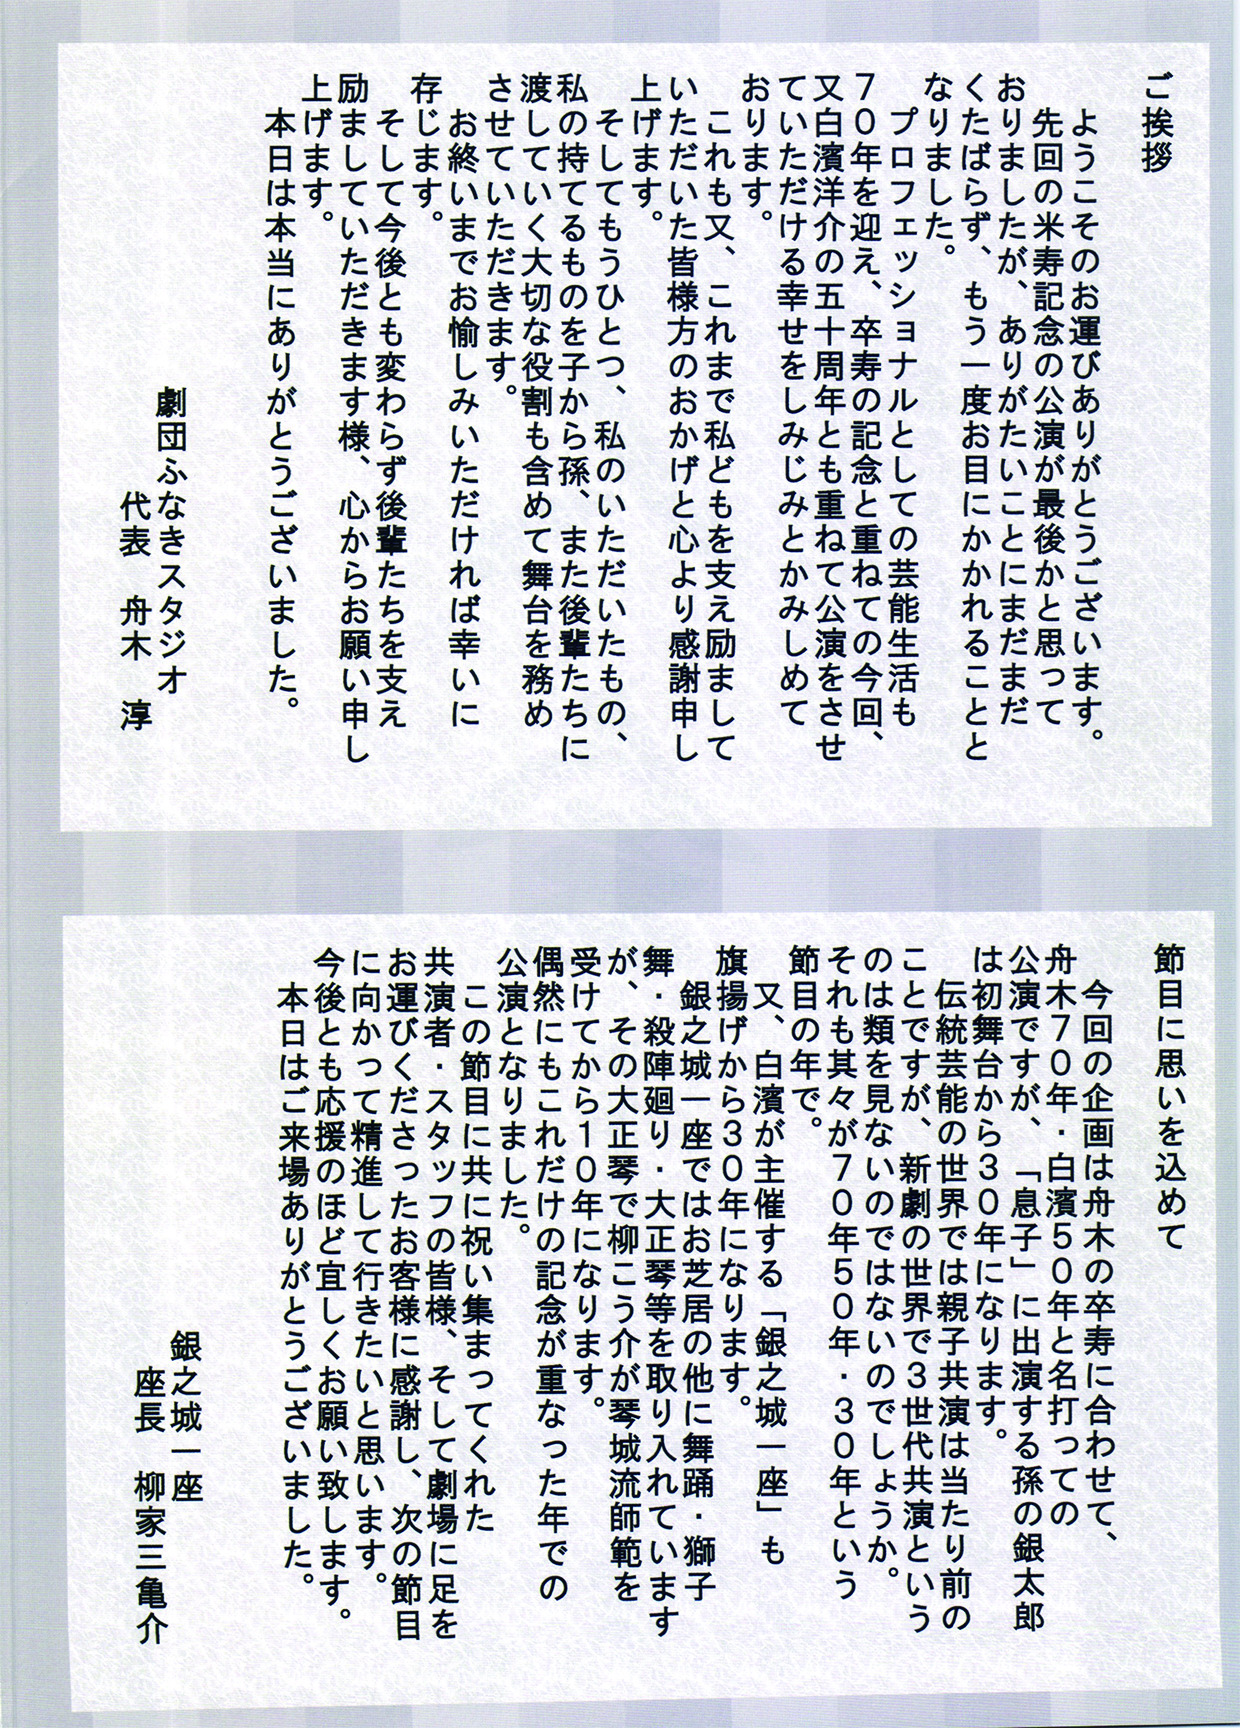 ご挨拶
ようこそのお運びありがとうございます。
先回の米寿記念の公演が最後かと思って
おりましたが、ありがたいことにまだまだ
くたばらず、もう一度お目にかかれることと
なりました。
プロフェッショナルとしての芸能生活も
７０年を迎え、卒寿の記念と重ねての今回、
又白濱洋介の五十周年とも重ねて公演をさせ
ていただける幸せをしみじみとかみしめて
おります。
これも又、これまで私どもを支え励まして
いただいた皆様方のおかげと心より感謝申し
上げます。
そしてもうひとつ、私のいただいたもの、
私の持てるものを子から孫、また後輩たちに
渡していく大切な役割も含めて舞台を務め
させていただきます。
お終いまでお愉しみいただければ幸いに
存じます。
そして今後とも変わらず後輩たちを支え
励ましていただきます様、心からお願い申し
上げます。
本日は本当にありがとうございました。
劇団ふなきスタジオ
代表　舟木　淳
節目に思いを込めて
今回の企画は舟木の卒寿に合わせて、
舟木７０年・白濱５０年と名打っての
公演ですが、「息子」に出演する孫の銀太郎
は初舞台から３０年になります。
伝統芸能の世界では親子共演は当たり前の
ことですが、新劇の世界で３世代共演という
のは類を見ないのではないのでしょうか。
それも其々が７０年５０年・３０年という
節目の年で。
又、白濱が主催する「銀之城一座」も
旗揚げから３０年になります。
銀之城一座ではお芝居の他に舞踊・獅子
舞・殺陣廻り・大正琴等を取り入れています
が、その大正琴で柳こう介が琴城流師範を
受けてから１０年になります。
偶然にもこれだけの記念が重なった年での
公演となりました。
この節目に共に祝い集まってくれた
共演者・スタッフの皆様、そして劇場に足を
お運びくださったお客様に感謝し、次の節目
に向かって精進して行きたいと思います。
今後とも応援のほど宜しくお願い致します。
本日はご来場ありがとうございました。
銀之城一座
座長　柳家三亀介